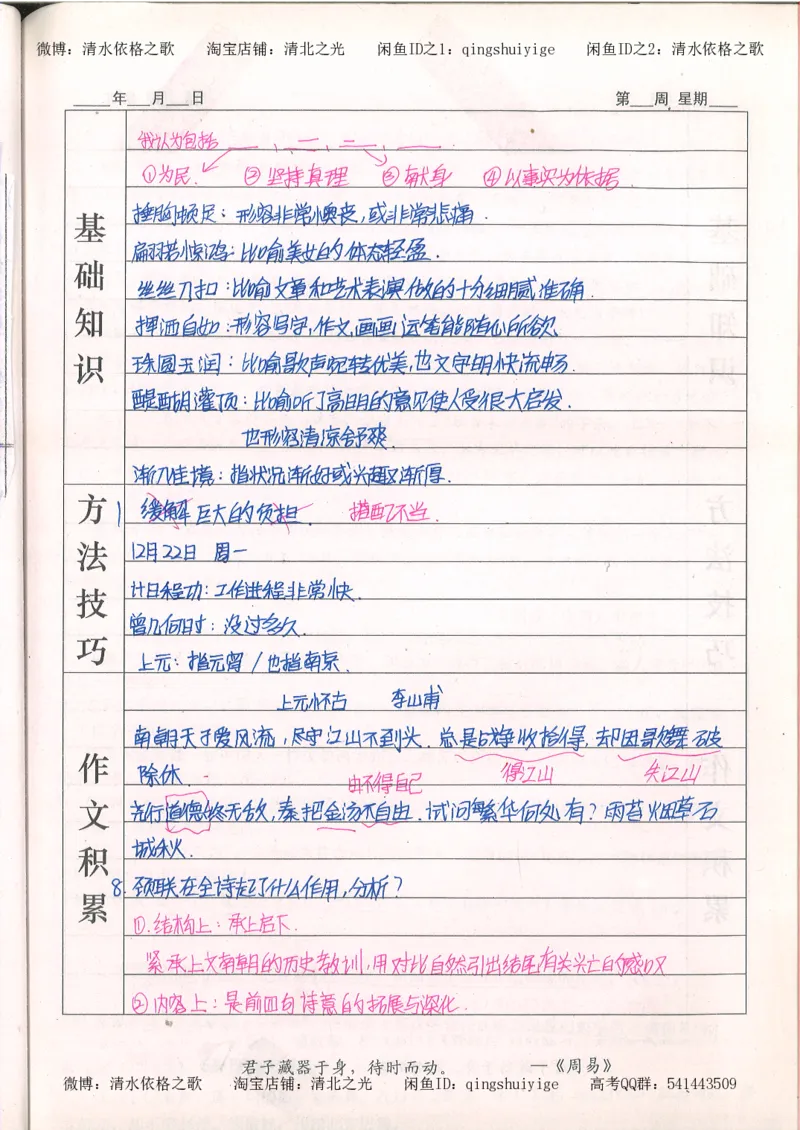 微博：清水依格之歌　淘宝店铺：清北之光　闲鱼ID之1：qingshuiyige　闲鱼ID之2：清水依格之歌
____年___月___日　第___周 星期____
基础知识
我认为包括____、____、____、____.
①为民. ②坚持真理 ③献身 ④以事实为依据.
捶胸顿足：形容非常懊丧,或非常悲痛.
翩若惊鸿：比喻美女的体态轻盈.
丝丝入扣：比喻文章和艺术表演做的十分细腻准确.
挥洒自如：形容写字,作文,画画,运笔能随心所欲.
珠圆玉润：比喻歌声婉转优美,也文字明快流畅.
醍醐灌顶：比喻听了高明的意见使人受很大启发.
也形容清凉舒爽.
渐入佳境：指状况渐好或兴趣渐厚.
方法技巧
缓解巨大的负担. 搭配不当.
12月22日 周一
计日程功：工作进程非常快.
曾几何时：没过多久.
上元：指元宵/也指南京.
作文积累
上元怀古 李山甫
南朝天子爱风流,尽守江山不到头.总是战争收拾得,却因歌舞破
除休. 由不得自己 得江山 失江山
尧行道德终无敌,秦把金汤不自由.试问繁华何处有?雨苔烟草石
城秋.
8.颈联在全诗起了什么作用,分析?
①.结构上：承上启下.
紧承上文南朝的历史教训,用对比自然引出结尾有关兴亡的感叹
②内容上：是前四句诗意的拓展与深化.
君子藏器于身，待时而动。　——《周易》
微博：清水依格之歌　淘宝店铺：清北之光　闲鱼ID：qingshuiyige　高考QQ群：541443509